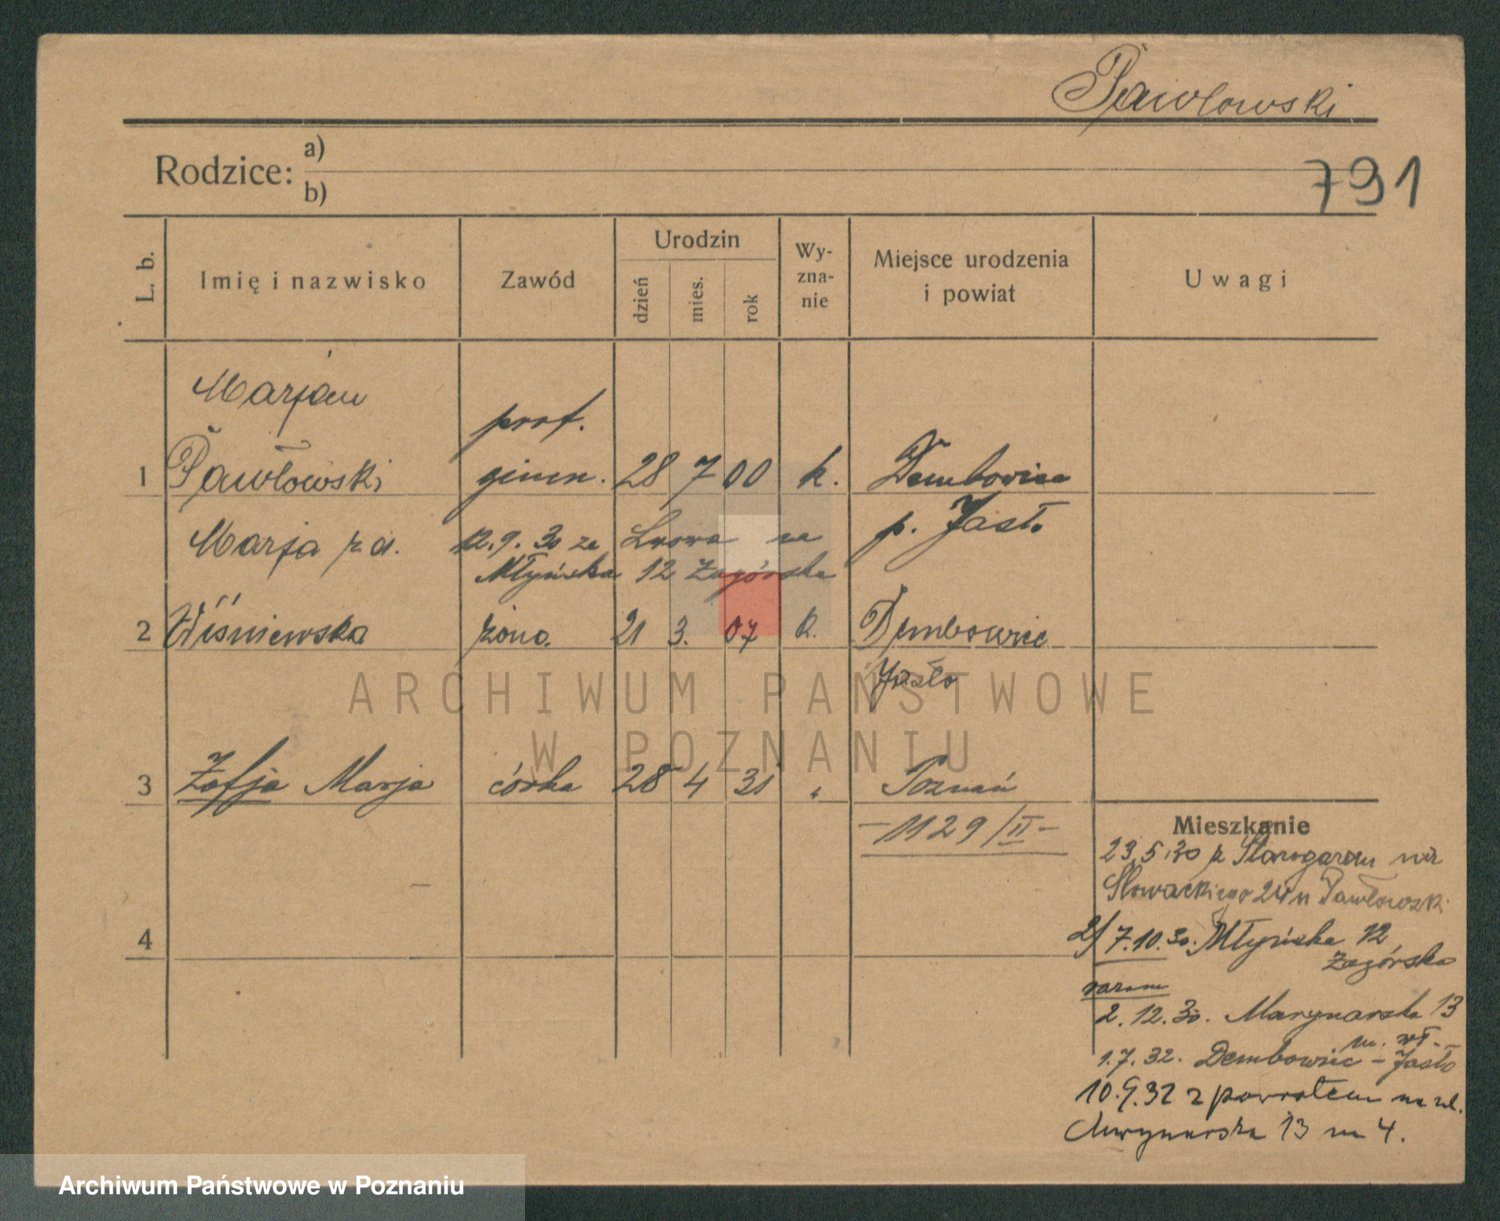 Pawłowski
Rodzice: a)
b)
791
L. b.
Imię i nazwisko
Zawód
Urodzin
dzień
mies.
rok
Wy-
zna-
nie
Miejsce urodzenia
i powiat
Uwagi
Marjan
prof.
1 Pawłowski gimn. 28 7 00 k. Dembowiec
p. Jasło
Marja z d. 12.9.30 ze Lwowa na
Młyńska 12 Zagórska
2 Wiśniewska żona 21 3. 07 k. Dembowiec
Jasło
ARCHIWUM PAŃSTWOWE
W POZNANIU
3 Zofja Marja córka 28 4 31 " Poznań
-1129/II-
4
Mieszkanie
23.5.30 z Starogardu
Słowackiego 24 u Pawłowski
2/ 7.10.30. Młyńska 12
Zagórska
razem
2.12.30. Marynarska 13
m. wł.
1.7.32. Dembowiec - Jasło
10.9.32 z powrotem na ul.
Marynarska 13 m 4.
Archiwum Państwowe w Poznaniu